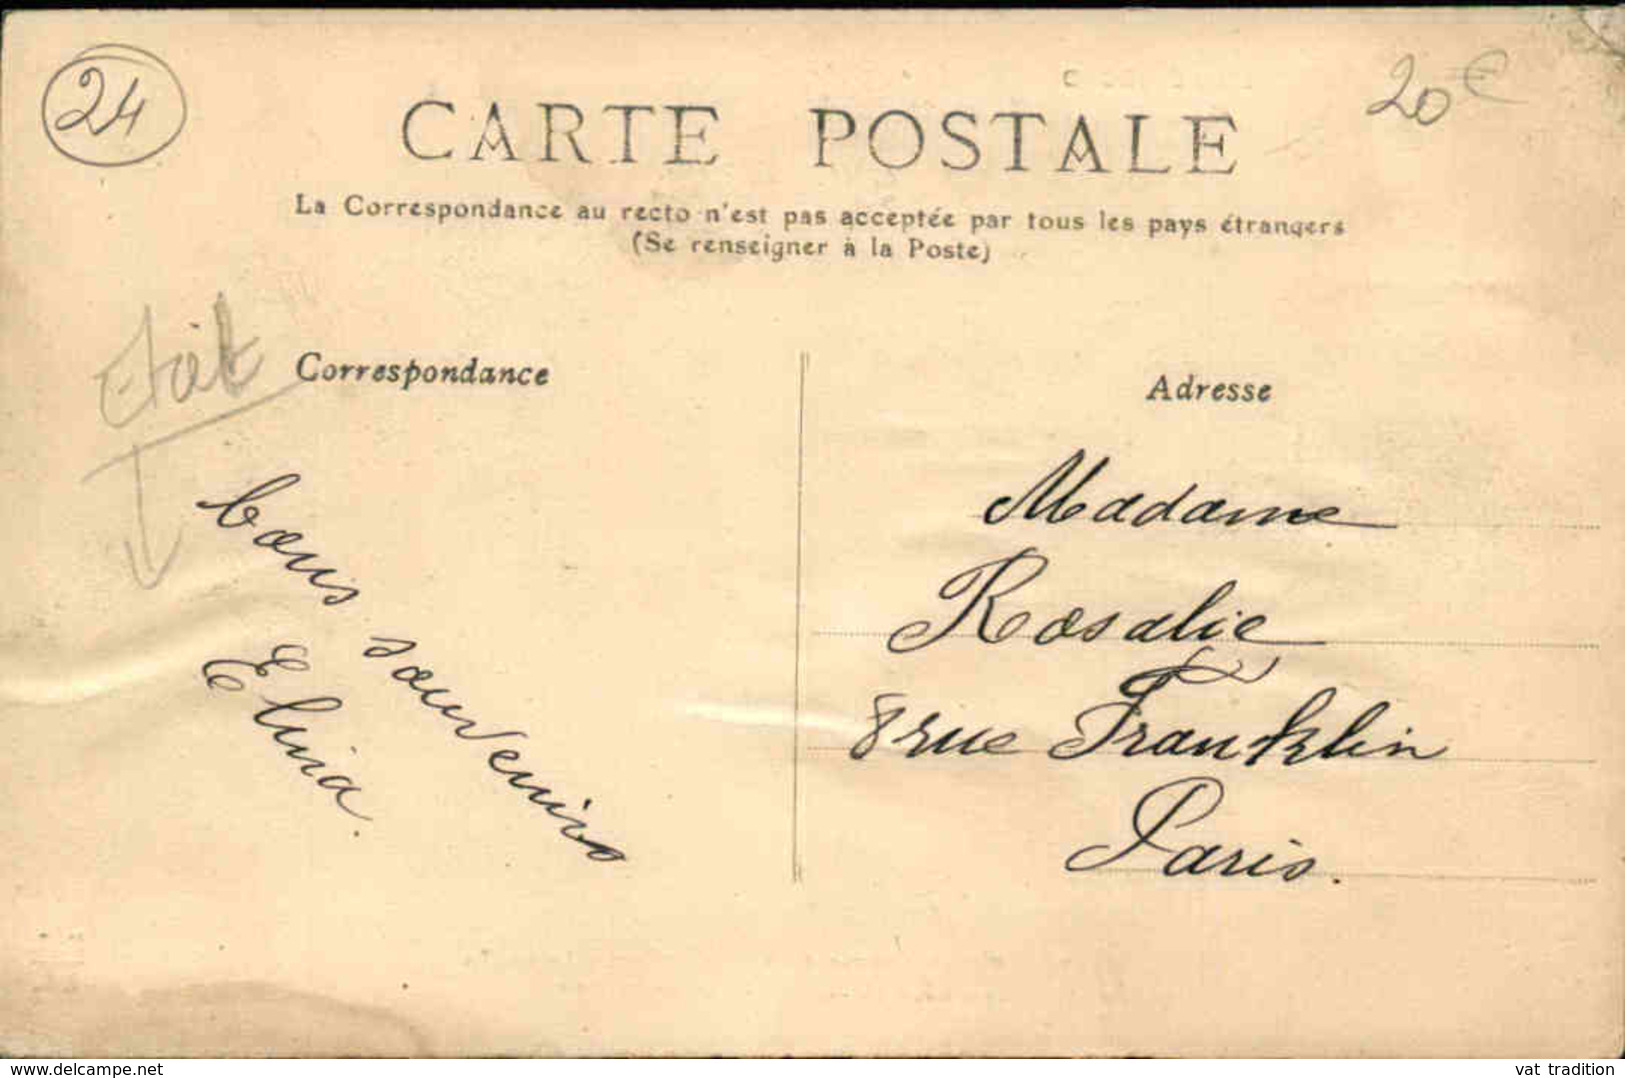 24
20 €
CARTE POSTALE
La Correspondance au recto n'est pas acceptée par tous les pays étrangers
(Se renseigner à la Poste)
Etat
Correspondance
bons souvenirs
Elina.
Adresse
Madame
Rosalie
8 rue Franklin
Paris.
delcampe.net
vat_tradition